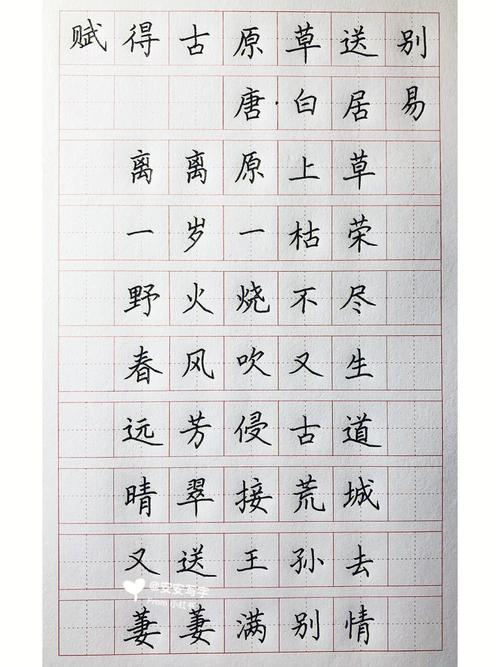 赋得古原草送别
唐·白居易
离离原上草
一岁一枯荣
野火烧不尽
春风吹又生
远芳侵古道
晴翠接荒城
又送王孙去
萋萋满别情
@安安写字
From 小红书